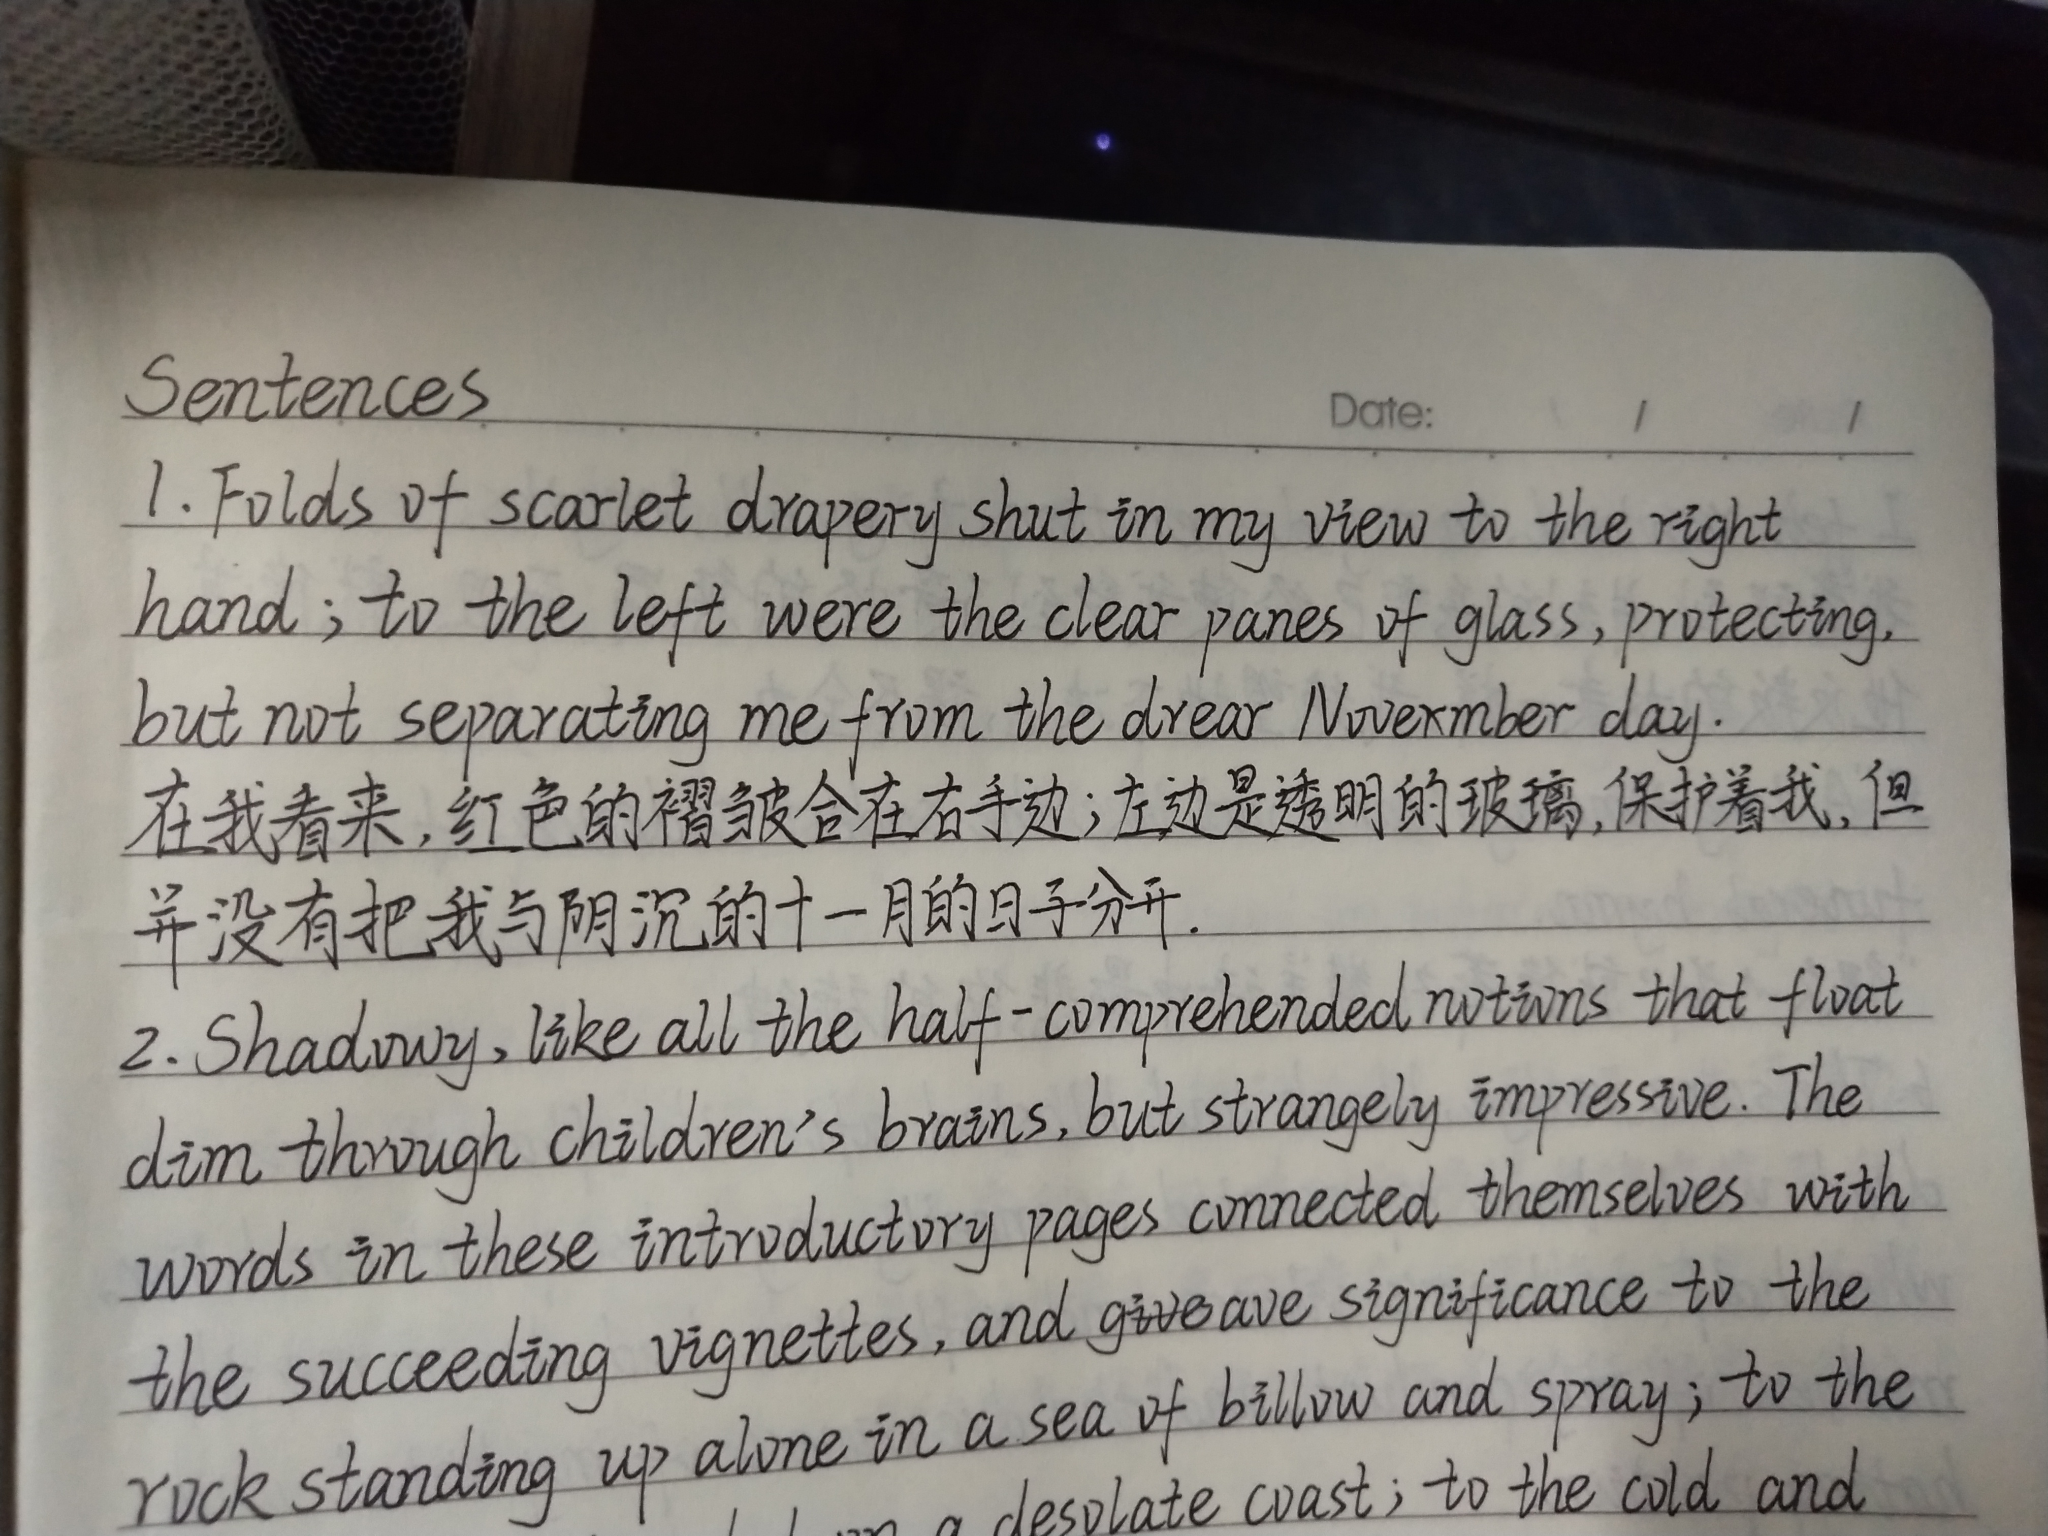 Sentences
Date: / /
1. Folds of scarlet drapery shut in my view to the right
hand; to the left were the clear panes of glass, protecting,
but not separating me from the drear Novexmber day.
在我看来,红色的褶皱合在右手边;左边是透明的玻璃,保护着我,但
并没有把我与阴沉的十一月的日子分开.
2. Shadowy, like all the half-comprehended notions that float
dim through children's brains, but strangely impressive. The
words in these introductory pages connected themselves with
the succeeding vignettes, and giveave significance to the
rock standing up alone in a sea of billow and spray; to the
a desolate coast; to the cold and